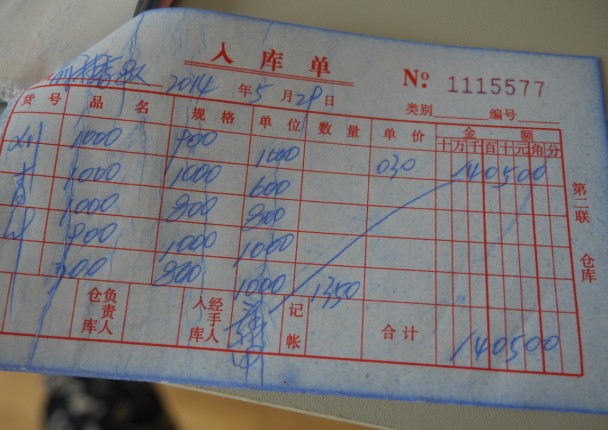 入库单
№ 1115577
2014年5月28日
类别 编号
货号 品名 规格 单位 数量 单价 金额
十万千百十元角分
1000 900 1000 030 140500
1000 1000 600
1000 800 800
900 1000 1000
800 1000 1350
仓库负责人 入库经手人 记帐 合计 140500
第二联 仓库